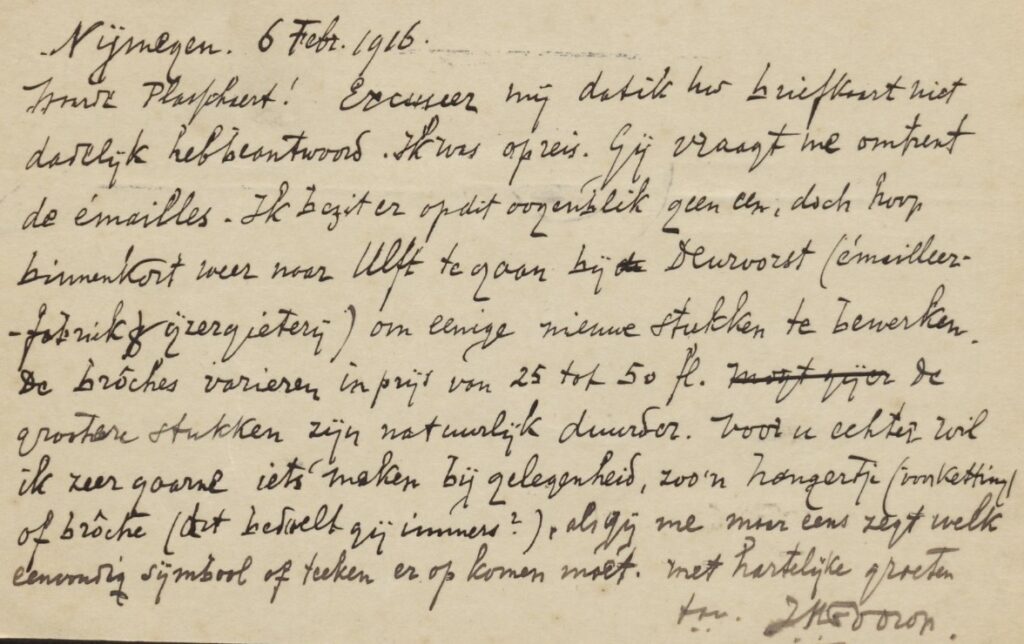 Nijmegen. 6 Febr. 1916.
Waarde Plasschaert! Excuseer mij dat ik uw briefkaart niet
dadelijk heb beantwoord. Ik was op reis. Gij vraagt me omtrent
de émailles. Ik bezit er op dit oogenblik geen een, doch hoop
binnenkort weer naar Ulft te gaan bij de Deurvorst (émailleer-
-fabriek & ijzergieterij) om eenige nieuwe stukken te bewerken.
De brôches varieren in prijs van 25 tot 50 fl. Mogt gij er De
grootere stukken zijn natuurlijk duurder. Voor u echter wil
ik zeer gaarne iets maken bij gelegenheid, zoo'n hangertje (voor ketting)
of brôche (dat bedoelt gij immers?), als gij me maar eens zegt welk
eenvoudig symbool of teeken er op komen moet. Met hartelijke groeten
t.à.v. JHToorop.